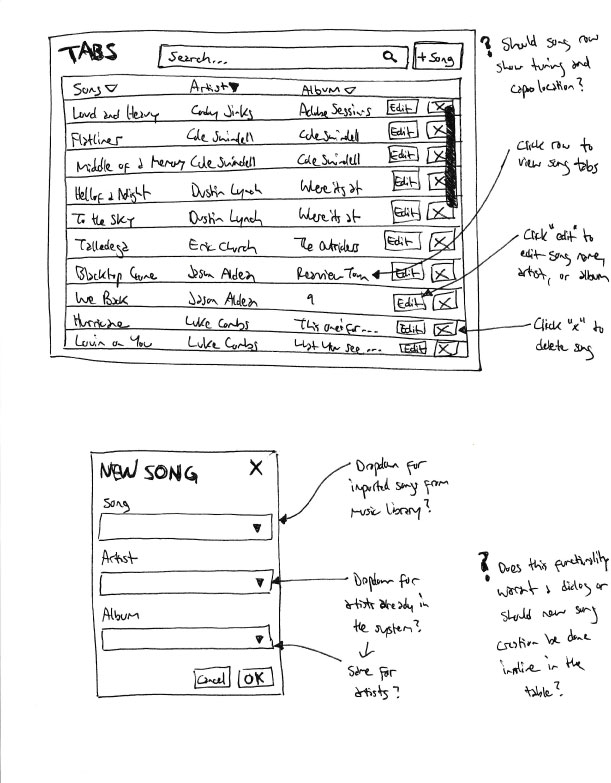 TABS
Search...
+ Song
Song Artist Album
Loud and Heavy Cody Jinks Adobe Sessions Edit X
Flatliner Cole Swindell Cole Swindell Edit X
Middle of a Memory Cole Swindell Cole Swindell Edit X
Hell of a Night Dustin Lynch Where its at Edit X
To the Sky Dustin Lynch Where its at Edit X
Talladega Eric Church The Outsiders Edit X
Blacktop Gone Jason Aldean Rearview Town Edit X
We Back Jason Aldean 9 Edit X
Hurricane Luke Combs This one's for... Edit X
Lovin on You Luke Combs What you see ... Edit X
? Should song row
show tuning and
capo location?
Click row to
view song tabs
Click "edit" to
edit song name,
artist, or album
Click "x" to
delete song
NEW SONG X
Song
Artist
Album
Cancel OK
Dropdown for
imported songs from
Music Library?
Dropdown for
artists already in
the system?
Same for
artists?
? Does this functionality
warrant a dialog or
should new song
creation be done
inline in the
table?